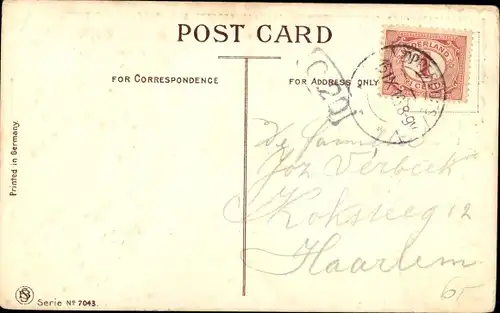 POST CARD
FOR CORRESPONDENCE
FOR ADDRESS ONLY
NEDERLAND
De Familie
Joz Verbeek
Koksteeg 12
Haarlem
6-
Printed in Germany.
Serie Nº 7043.